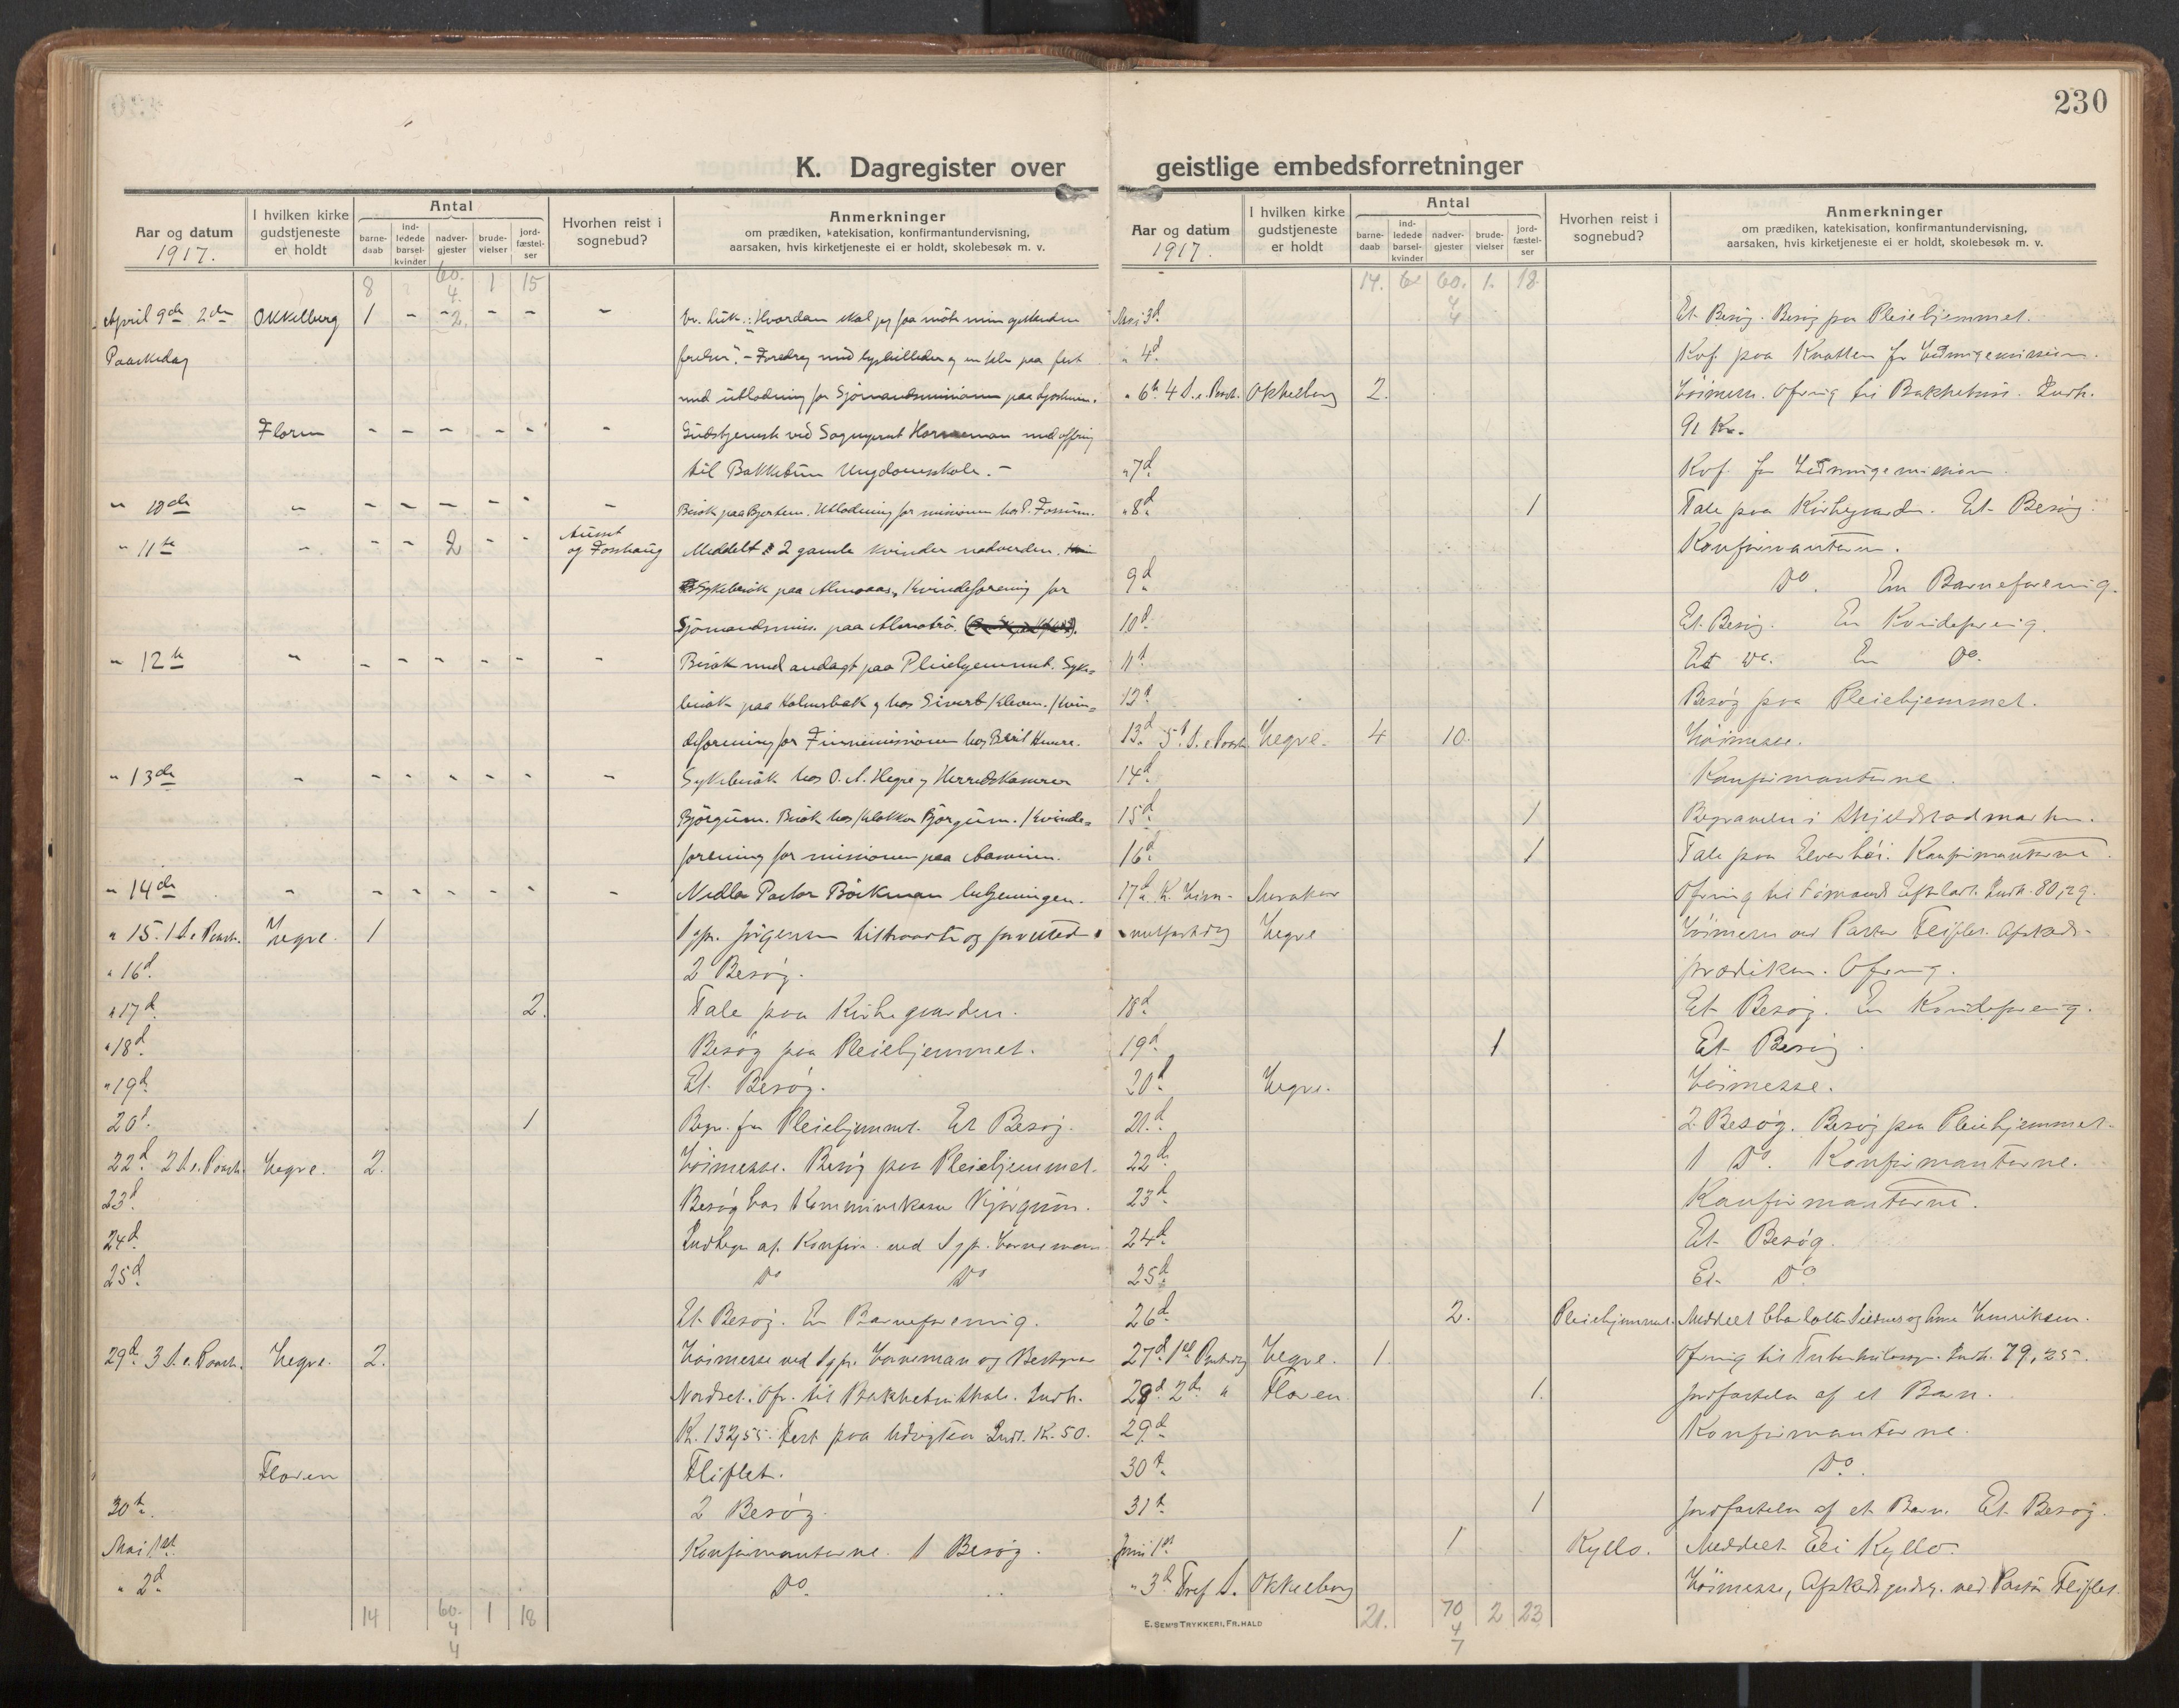 230
K. Dagregister over geistlige embedsforretninger
Aar og datum
1917.
I hvilken kirke gudstjeneste er holdt
Antal
barne-daab
ind-ledede barsel-kvinder
nadver-gjester
brude-vielser
jord-fæstel-ser
Hvorhen reist i sognebud?
Anmerkninger
om prædiken, katekisation, konfirmantundervisning,
aarsaken, hvis kirketjeneste ei er holdt, skolebesøk m. v.
8 60. 4. 1 15
April 9de 2den Okkelberg 1 - - 2. - - - Ev. Luk.: Hvordan skal jeg faa møte min
Paaskedag - Foredrag med lysbilleder og en tale paa fest
med utlodning for Sjømandsmissionen paa
Floren - - - - - - Gudstjeneste ved Sogneprest Horneman med ofring
til Bakketun Ungdomsskole. -
" 10de " - - - - - - Besøk paa Bjertem. Utlodning for missionen hos P. Fossum.
" 11te " - - 2 - - Auset og Fosshaug Meddelt 2 gamle kvinder nadverden.
Sykebesøk paa Almaas, Kvindeforening for
Sjømandsmiss. paa
" 12te " - - - - - - Besøk med andagt paa Pleiehjemmet. Syke-
besøk paa Holmsbak og hos Sivert Kleven. Kvin-
deforening for Finnemissionen hos Berit
" 13de - - - - - - - Sykebesøk hos O. A. Hegre og Herredskasserer
Bjørgum. Besøk hos Klokker Bjørgum. Kvinde-
forening for missionen paa
" 14de - - - - - - - Pastor Böckman betjeningen.
" 15. 1 S. e. Paask. Hegre. 1 Sgpr. Jørgensen
" 16d. 2 Besøg.
" 17d. 2. Tale paa Kirkegaarden.
" 18d. Besøg paa Pleiehjemmet.
" 19d. Et Besøg.
20d. 1 Begr. fra Pleiehjemmet. Et Besøg.
22d. 2 S. e. Paask. Hegre. 2. Høimesse. Besøg paa Pleiehjemmet.
23d. Besøg hos Kommunekasser Bjørgum.
24d. Indtegn. af Konfirm. ved Sgpr. Horneman
25d. Do Do
Et Besøg. En Barneforening.
29d. 3 S. e. Paask. Hegre. 2. Høimesse ved Sgpr. Horneman og Bestyrer
Nordset. Ofr. til Bakketunskole. Indk.
Kr. 132,55. Fest paa Udsigten Indt. Kr. 50.
Floren Fliflet.
30d. 2 Besøg.
Mai 1st Konfirmanterne. 1 Besøg.
" 2d. Do
14 60. 4 4 1 18
Aar og datum
1917.
I hvilken kirke gudstjeneste er holdt
Antal
barne-daab
ind-ledede barsel-kvinder
nadver-gjester
brude-vielser
jord-fæstel-ser
Hvorhen reist i sognebud?
Anmerkninger
om prædiken, katekisation, konfirmantundervisning,
aarsaken, hvis kirketjeneste ei er holdt, skolebesøk m. v.
14. 60. 4 4 1. 18.
Mai 3d. Et Besøg. Besøg paa Pleiehjemmet.
" 4d Kvf. paa Kvatten for Hedningemissionen.
" 6te 4 S. e. Paask. Okkelberg 2. Høimesse. Ofring til Bakketun. Indk.
91 Kr.
" 7d Kvf. for Hedningemission.
" 8d 1 Tale paa Kirkegaarden. Et Besøg.
Konfirmanterne.
9d Do. En Barneforening.
10d. Et Besøg. En Kvindeforenig.
11d Et do. En Do.
12d Besøg paa Pleiehjemmet.
13d. 5d S. e Paask Hegre. 4 10. Høimesse.
14d Konfirmanterne.
15d 1 Begravelse i Skjeldstadmarken.
16d. 1 Tale paa Konfirmanterne.
17d. K. Him- Meraker Ofring til Indk. 80,29.
melfartsdag Hegre Høimesse ved Pastor Fliflet. Afskeds-
prædiken. Ofring.
18d Et Besøg. En Kvindeforenig.
19d. 1 Et Besøg.
20d Hegre. Høimesse.
21d. 2 Besøg. Besøg paa Pleiehjemmet.
22d. 1 Do. Konfirmanterne.
23d Konfirmanterne.
24d. Et Besøg.
25d. Et Do
26d. 2. Pleiehjemmet. Meddelt Charlotte og Ane Henriksen.
27d. 1st Pintsedag Hegre. 1. Ofring til Indk. 79,25.
28d. 2d " Floren 1. Jordfæstelse af et Barn.
29d. Konfirmanterne.
30d. Do.
31d. 1 Jordfæstelse af et Barn. Et Besøg.
Juni 1st 1 Kyllo. Meddelt Eli Kyllo.
" 3d Tref. S. Okkelberg Høimesse, Afskeds ved Pastor Fliflet.
21. 70 4 7 2 23
E. Sem's Trykkeri, Fr.hald